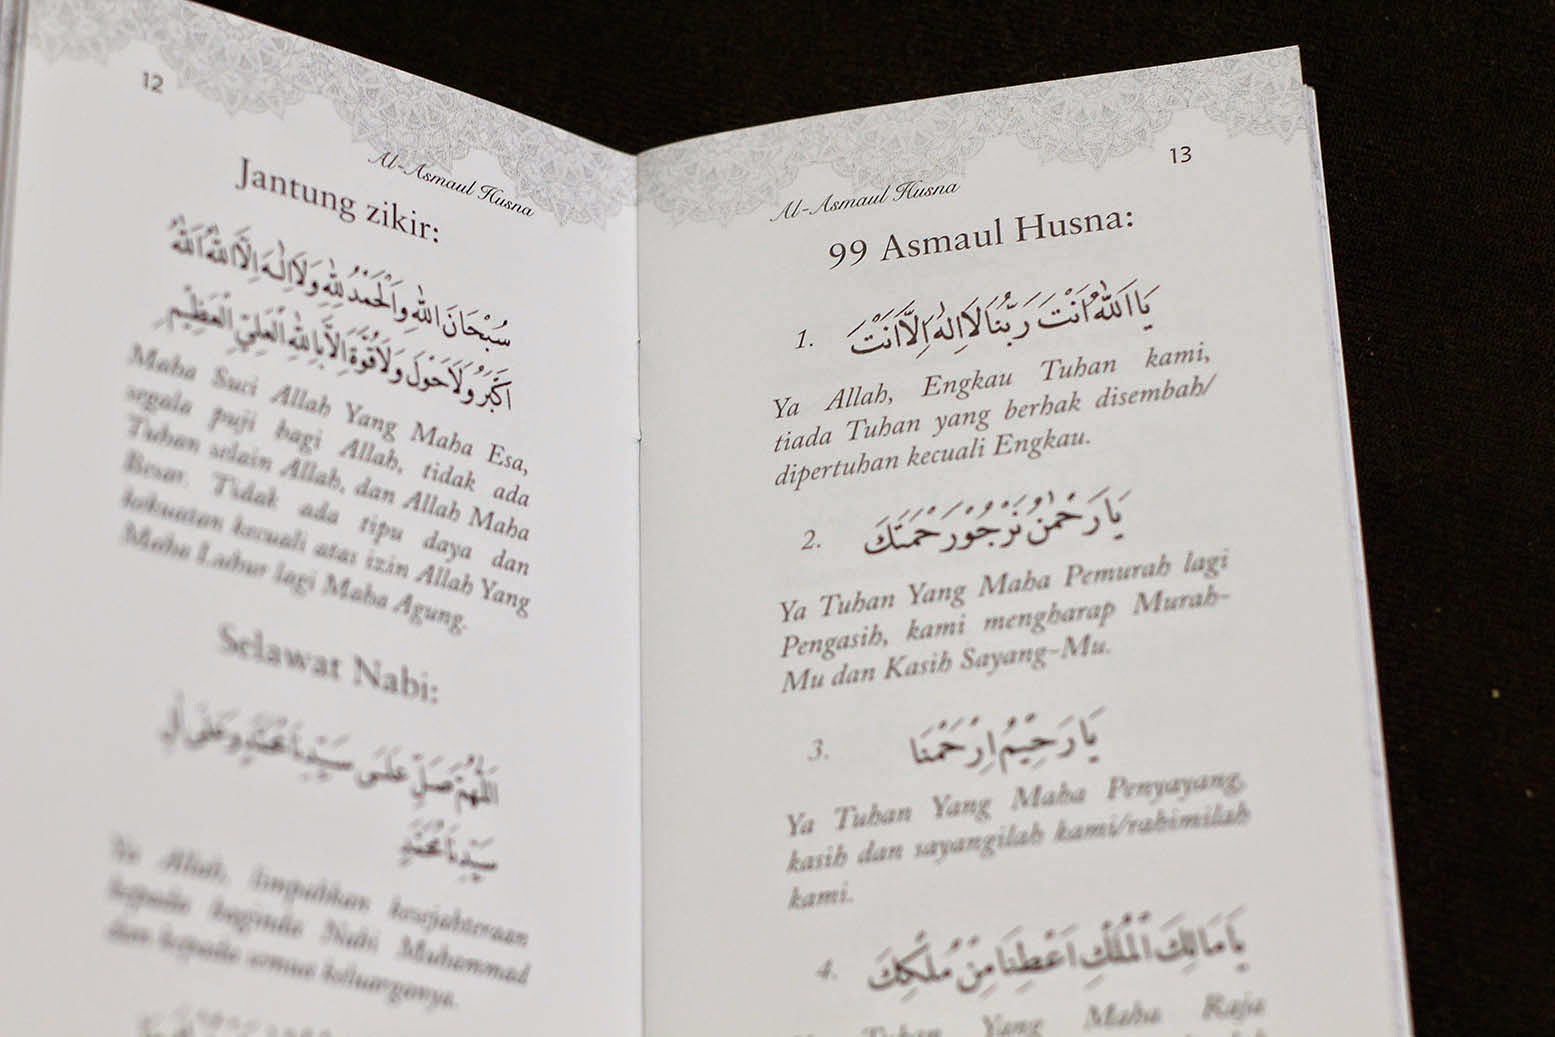 12
Al-Asmaul Husna
Jantung zikir:
سُبْحَانَ اللّٰهِ وَالْحَمْدُ لِلّٰهِ وَلَا اِلٰهَ اِلَّا اللّٰهُ اَللّٰهُ
اَكْبَرُ وَلَا حَوْلَ وَلَا قُوَّةَ اِلَّا بِاللّٰهِ الْعَلِيِّ الْعَظِيْمِ
Maha Suci Allah Yang Maha Esa,
segala puji bagi Allah, tidak ada
Tuhan selain Allah, dan Allah Maha
Besar. Tidak ada tipu daya dan
kekuatan kecuali atas izin Allah Yang
Maha Luhur lagi Maha Agung.
Selawat Nabi:
اَللّٰهُمَّ صَلِّ عَلَى سَيِّدِنَا مُحَمَّدٍ وَعَلَى أٰلِ
سَيِّدِنَا مُحَمَّدٍ
Ya Allah, limpahkan kesejahteraan
kepada baginda Nabi Muhammad
dan kepada semua keluarganya.
13
Al-Asmaul Husna
99 Asmaul Husna:
1. يَا اَللّٰهُ اَنْتَ رَبُّنَا لَا اِلٰهَ اِلَّا اَنْتَ
Ya Allah, Engkau Tuhan kami,
tiada Tuhan yang berhak disembah/
dipertuhan kecuali Engkau.
2. يَا رَحْمٰنُ نَرْجُوْ رَحْمَتَكَ
Ya Tuhan Yang Maha Pemurah lagi
Pengasih, kami mengharap Murah-
Mu dan Kasih Sayang-Mu.
3. يَا رَحِيْمُ اِرْحَمْنَا
Ya Tuhan Yang Maha Penyayang,
kasih dan sayangilah kami/rahimilah
kami.
4. يَا مَالِكَ الْمُلْكِ اَعْطِنَا مِنْ مُلْكِكَ
Tuhan Yang Maha Raja